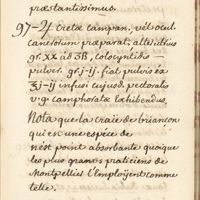 præstantissimus.
97 - ♃ Cretæ campan, vel ocul.
cancrorum præparat. altetritus
gr. xx ad ʒß, colocyntidis —
pulver. gr. j-ij. fiat pulvis ex
ʒj-ij infusi cujusd. pectoralis
v.g. camphoratæ exhibendus.
Nota que la craie de briançon
qui en une espéce de
n'est point absorbante quoique
les plus grands praticiens de
Montpellier l'employent comme
telle.